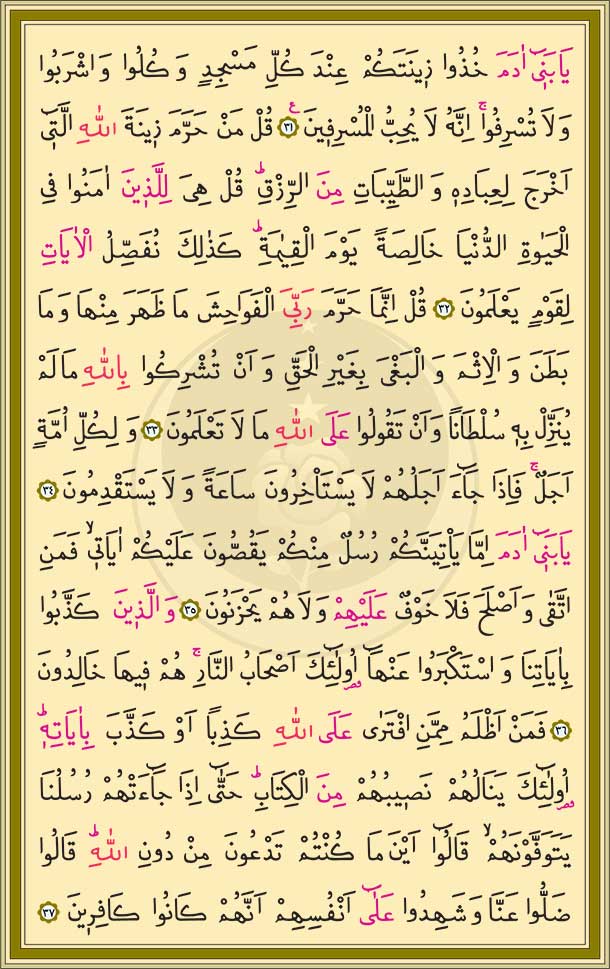 يَابَنٖٓي اٰدَمَ خُذُوا زٖينَتَكُمْ عِنْدَ كُلِّ مَسْجِدٍ وَكُلُوا وَاشْرَبُوا
وَلَا تُسْرِفُواۚ اِنَّهُ لَا يُحِبُّ الْمُسْرِفٖينَ ﴿٣١﴾ ع قُلْ مَنْ حَرَّمَ زٖينَةَ اللّٰهِ الَّتٖٓي
اَخْرَجَ لِعِبَادِهٖ وَالطَّيِّبَاتِ مِنَ الرِّزْقِۜ قُلْ هِيَ لِلَّذٖينَ اٰمَنُوا فِي
الْحَيٰوةِ الدُّنْيَا خَالِصَةً يَوْمَ الْقِيٰمَةِۜ كَذٰلِكَ نُفَصِّلُ الْاٰيَاتِ
لِقَوْمٍ يَعْلَمُونَ ﴿٣٢﴾ قُلْ اِنَّمَا حَرَّمَ رَبِّيَ الْفَوَاحِشَ مَا ظَهَرَ مِنْهَا وَمَا
بَطَنَ وَالْاِثْمَ وَالْبَغْيَ بِغَيْرِ الْحَقِّ وَاَنْ تُشْرِكُوا بِاللّٰهِ مَا لَمْ
يُنَزِّلْ بِهٖ سُلْطَاناً وَاَنْ تَقُولُوا عَلَى اللّٰهِ مَا لَا تَعْلَمُونَ ﴿٣٣﴾ وَلِكُلِّ اُمَّةٍ
اَجَلٌۚ فَاِذَا جَٓاءَ اَجَلُهُمْ لَا يَسْتَأْخِرُونَ سَاعَةً وَلَا يَسْتَقْدِمُونَ ﴿٣٤﴾
يَابَنٖٓي اٰدَمَ اِمَّا يَأْتِيَنَّكُمْ رُسُلٌ مِنْكُمْ يَقُصُّونَ عَلَيْكُمْ اٰيَاتٖيۙ فَمَنِ
اتَّقٰى وَاَصْلَحَ فَلَا خَوْفٌ عَلَيْهِمْ وَلَا هُمْ يَحْزَنُونَ ﴿٣٥﴾ وَالَّذٖينَ كَذَّبُوا
بِاٰيَاتِنَا وَاسْتَكْبَرُوا عَنْهَٓا اُو۬لٰٓئِكَ اَصْحَابُ النَّارِۚ هُمْ فٖيهَا خَالِدُونَ
﴿٣٦﴾ فَمَنْ اَظْلَمُ مِمَّنِ افْتَرٰى عَلَى اللّٰهِ كَذِباً اَوْ كَذَّبَ بِاٰيَاتِهٖۜ
اُو۬لٰٓئِكَ يَنَالُهُمْ نَصٖيبُهُمْ مِنَ الْكِتَابِۜ حَتّٰٓى اِذَا جَٓاءَتْهُمْ رُسُلُنَا
يَتَوَفَّوْنَهُمْۙ قَالُٓوا اَيْنَ مَا كُنْتُمْ تَدْعُونَ مِنْ دُونِ اللّٰهِۜ قَالُوا
ضَلُّوا عَنَّا وَشَهِدُوا عَلٰٓى اَنْفُسِهِمْ اَنَّهُمْ كَانُوا كَافِرٖينَ ﴿٣٧﴾